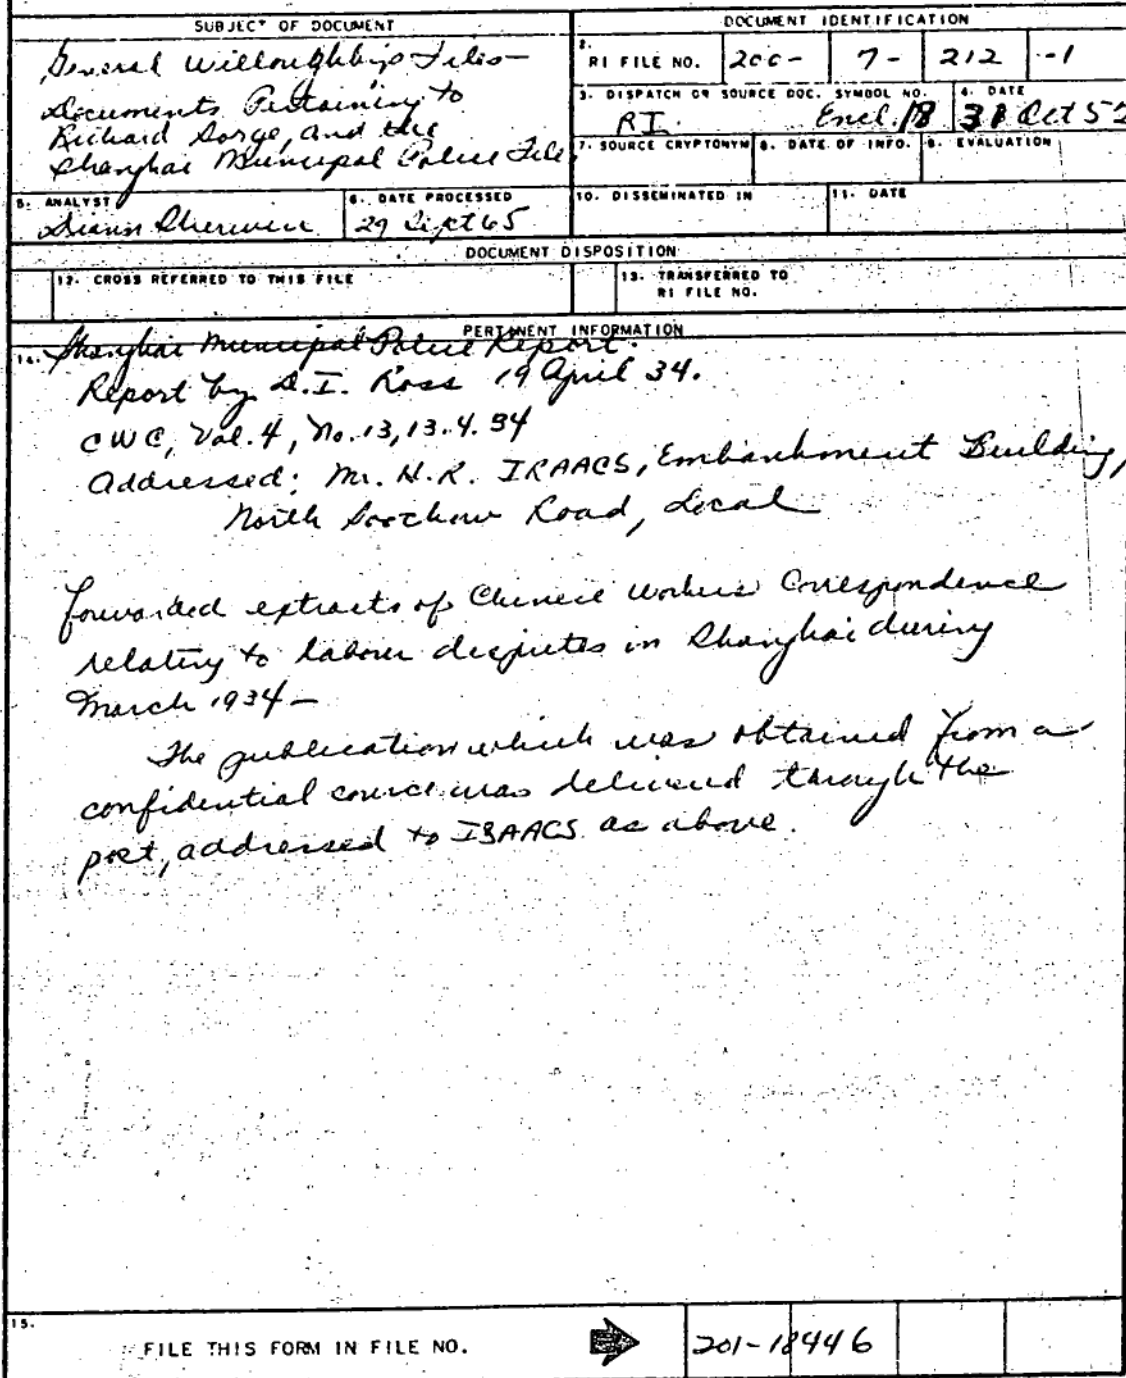 SUBJECT OF DOCUMENT
General Willoughby's Files—
Documents Pertaining to
Richard Sorge, and the
Shanghai Municipal Police File
DOCUMENT IDENTIFICATION
2.
RI FILE NO. 200- 7- 212 -1
3. DISPATCH OR SOURCE DOC. SYMBOL NO.
RI. Encl. 18
4. DATE
31 Oct 52
7. SOURCE CRYPTONYM
8. DATE OF INFO.
9. EVALUATION
5. ANALYST
6. DATE PROCESSED
29 Sept 65
10. DISSEMINATED IN
11. DATE
DOCUMENT DISPOSITION
12. CROSS REFERRED TO THIS FILE
13. TRANSFERRED TO
RI FILE NO.
PERTINENT INFORMATION
14. Shanghai Municipal Police Report.
Report by D.I. Ross 19 April 34.
CWC, Vol. 4, No. 13, 13.4.34
Addressed: Mr. H.R. ISAACS, Embankment Building,
North Soochow Road, Local
forwarded extracts of Chinese Workers Correspondence
relating to labour disputes in Shanghai during
March 1934—
The publication which was obtained from a
confidential source was delivered through the
post, addressed to ISAACS as above.
15.
FILE THIS FORM IN FILE NO. 201-18446